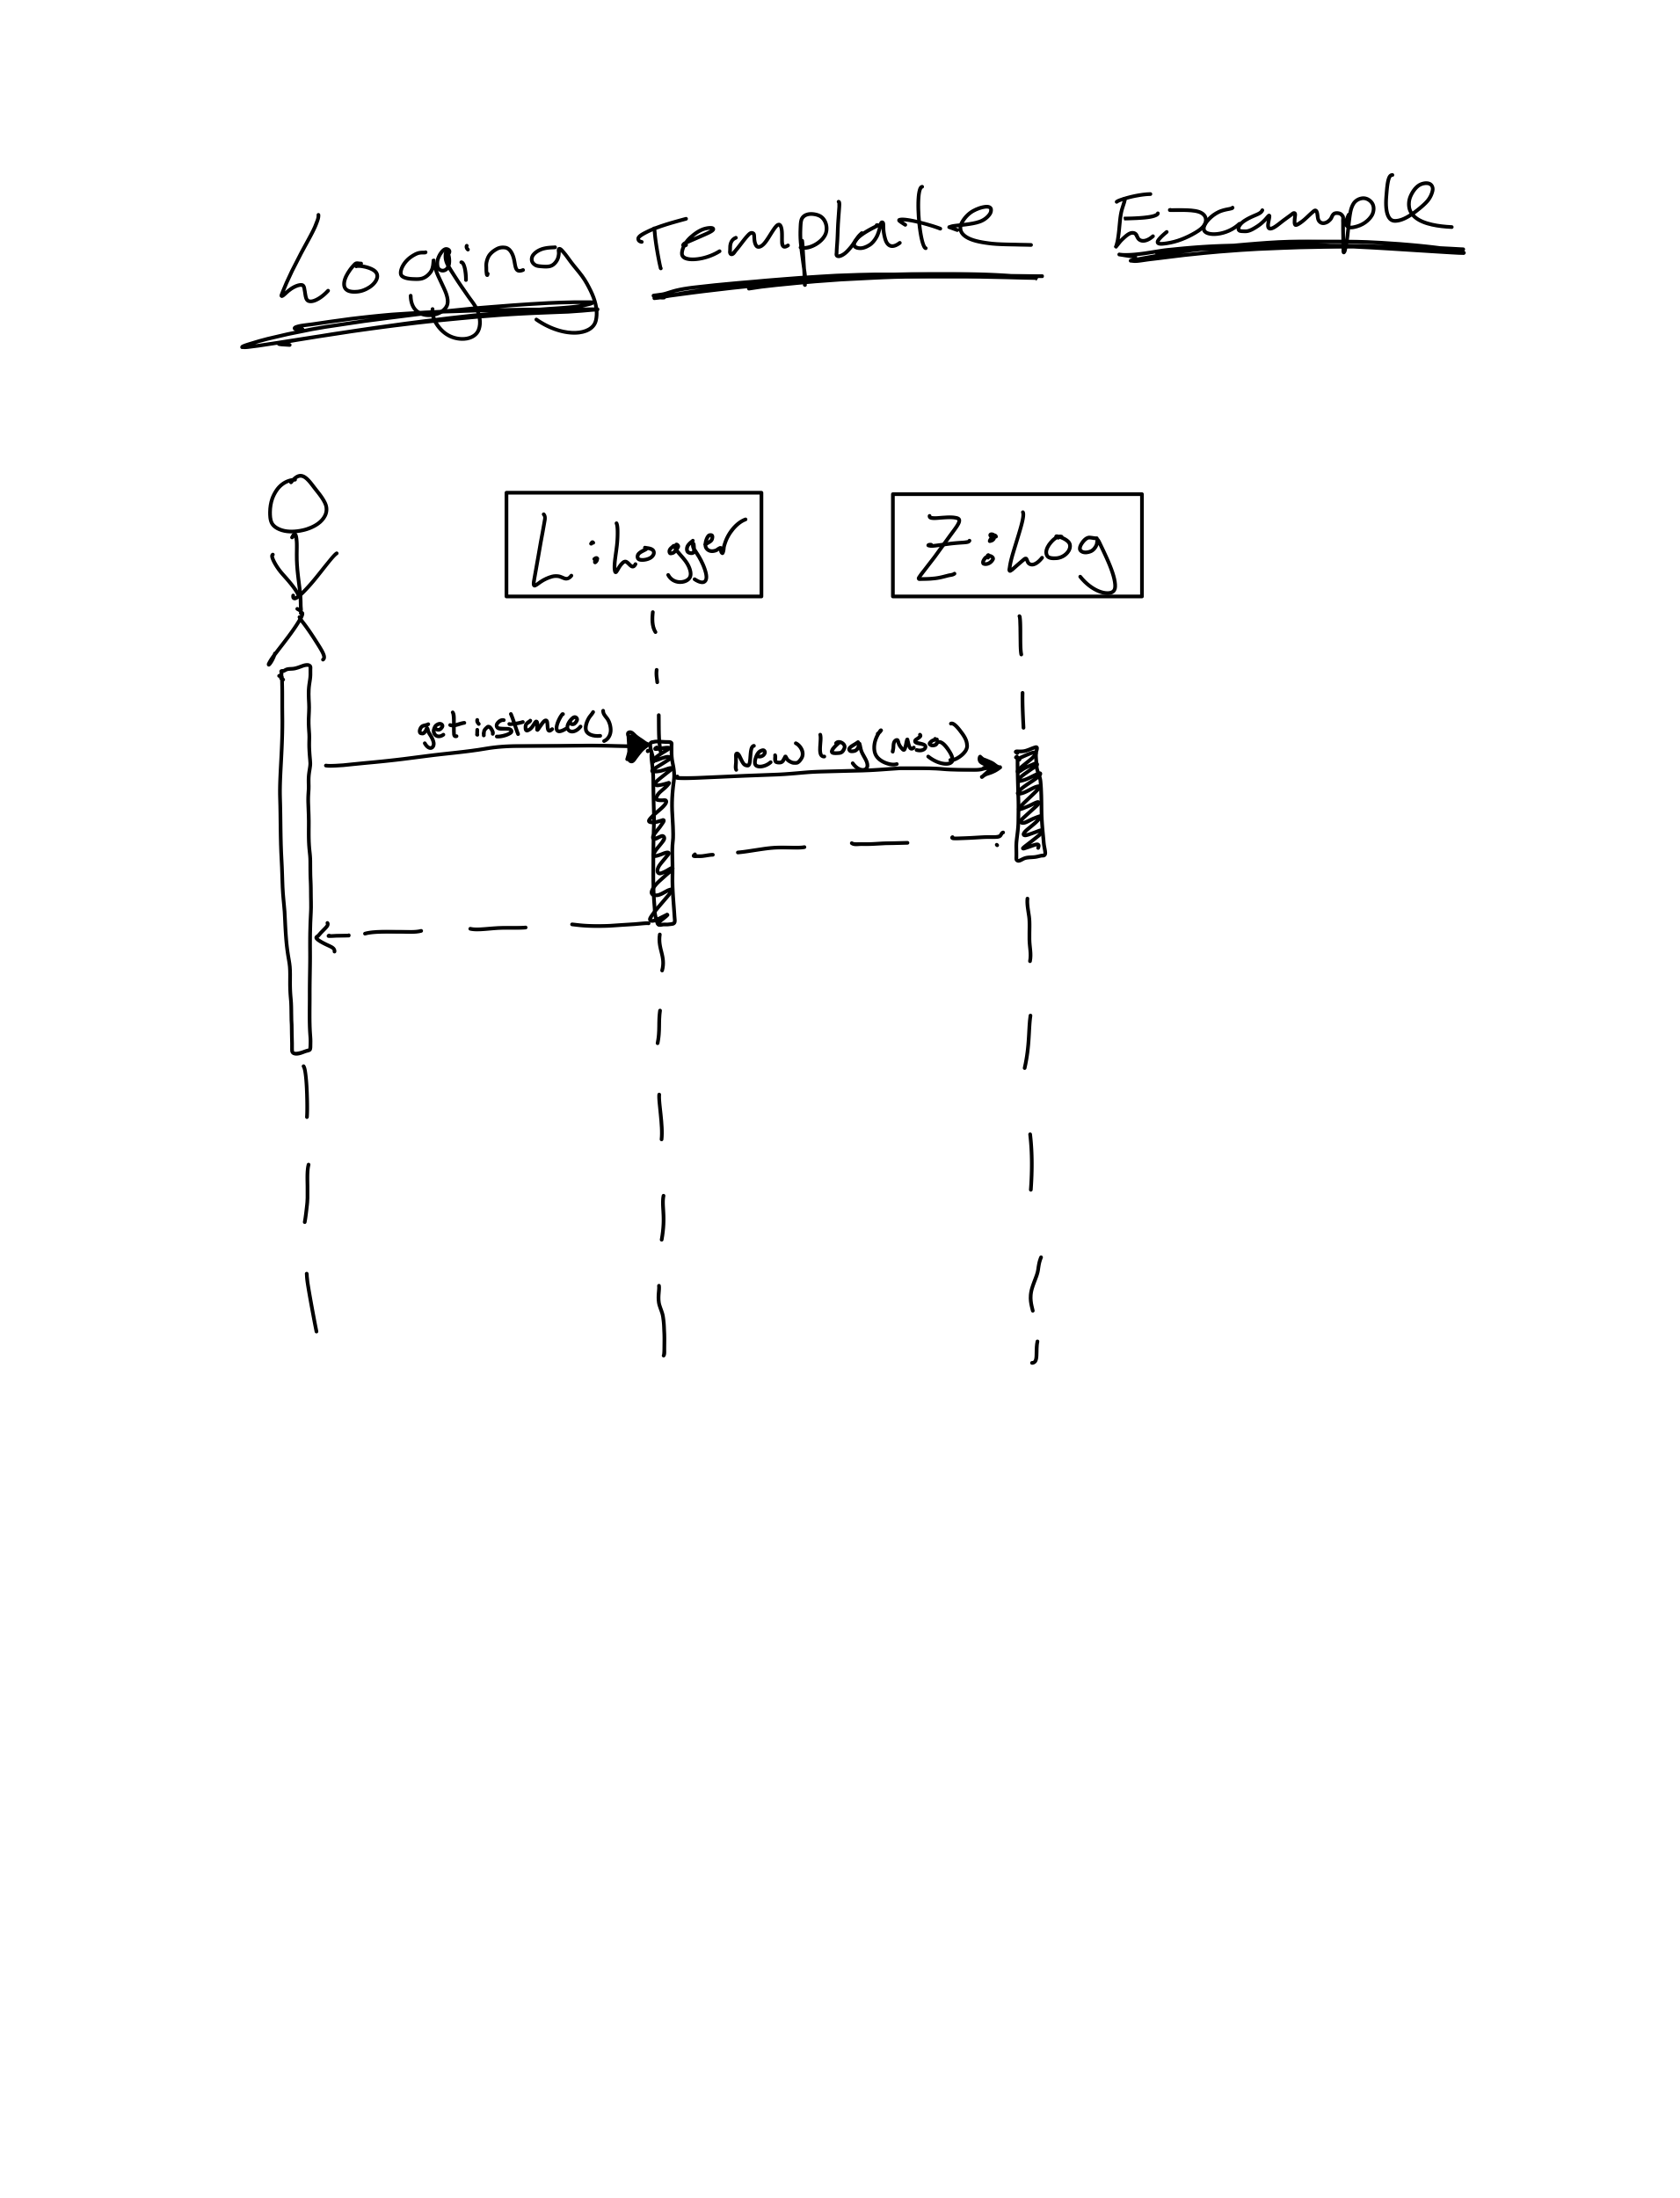 Logging Template Example
L : Logger
Z : Log
get instance()
new log(msg)